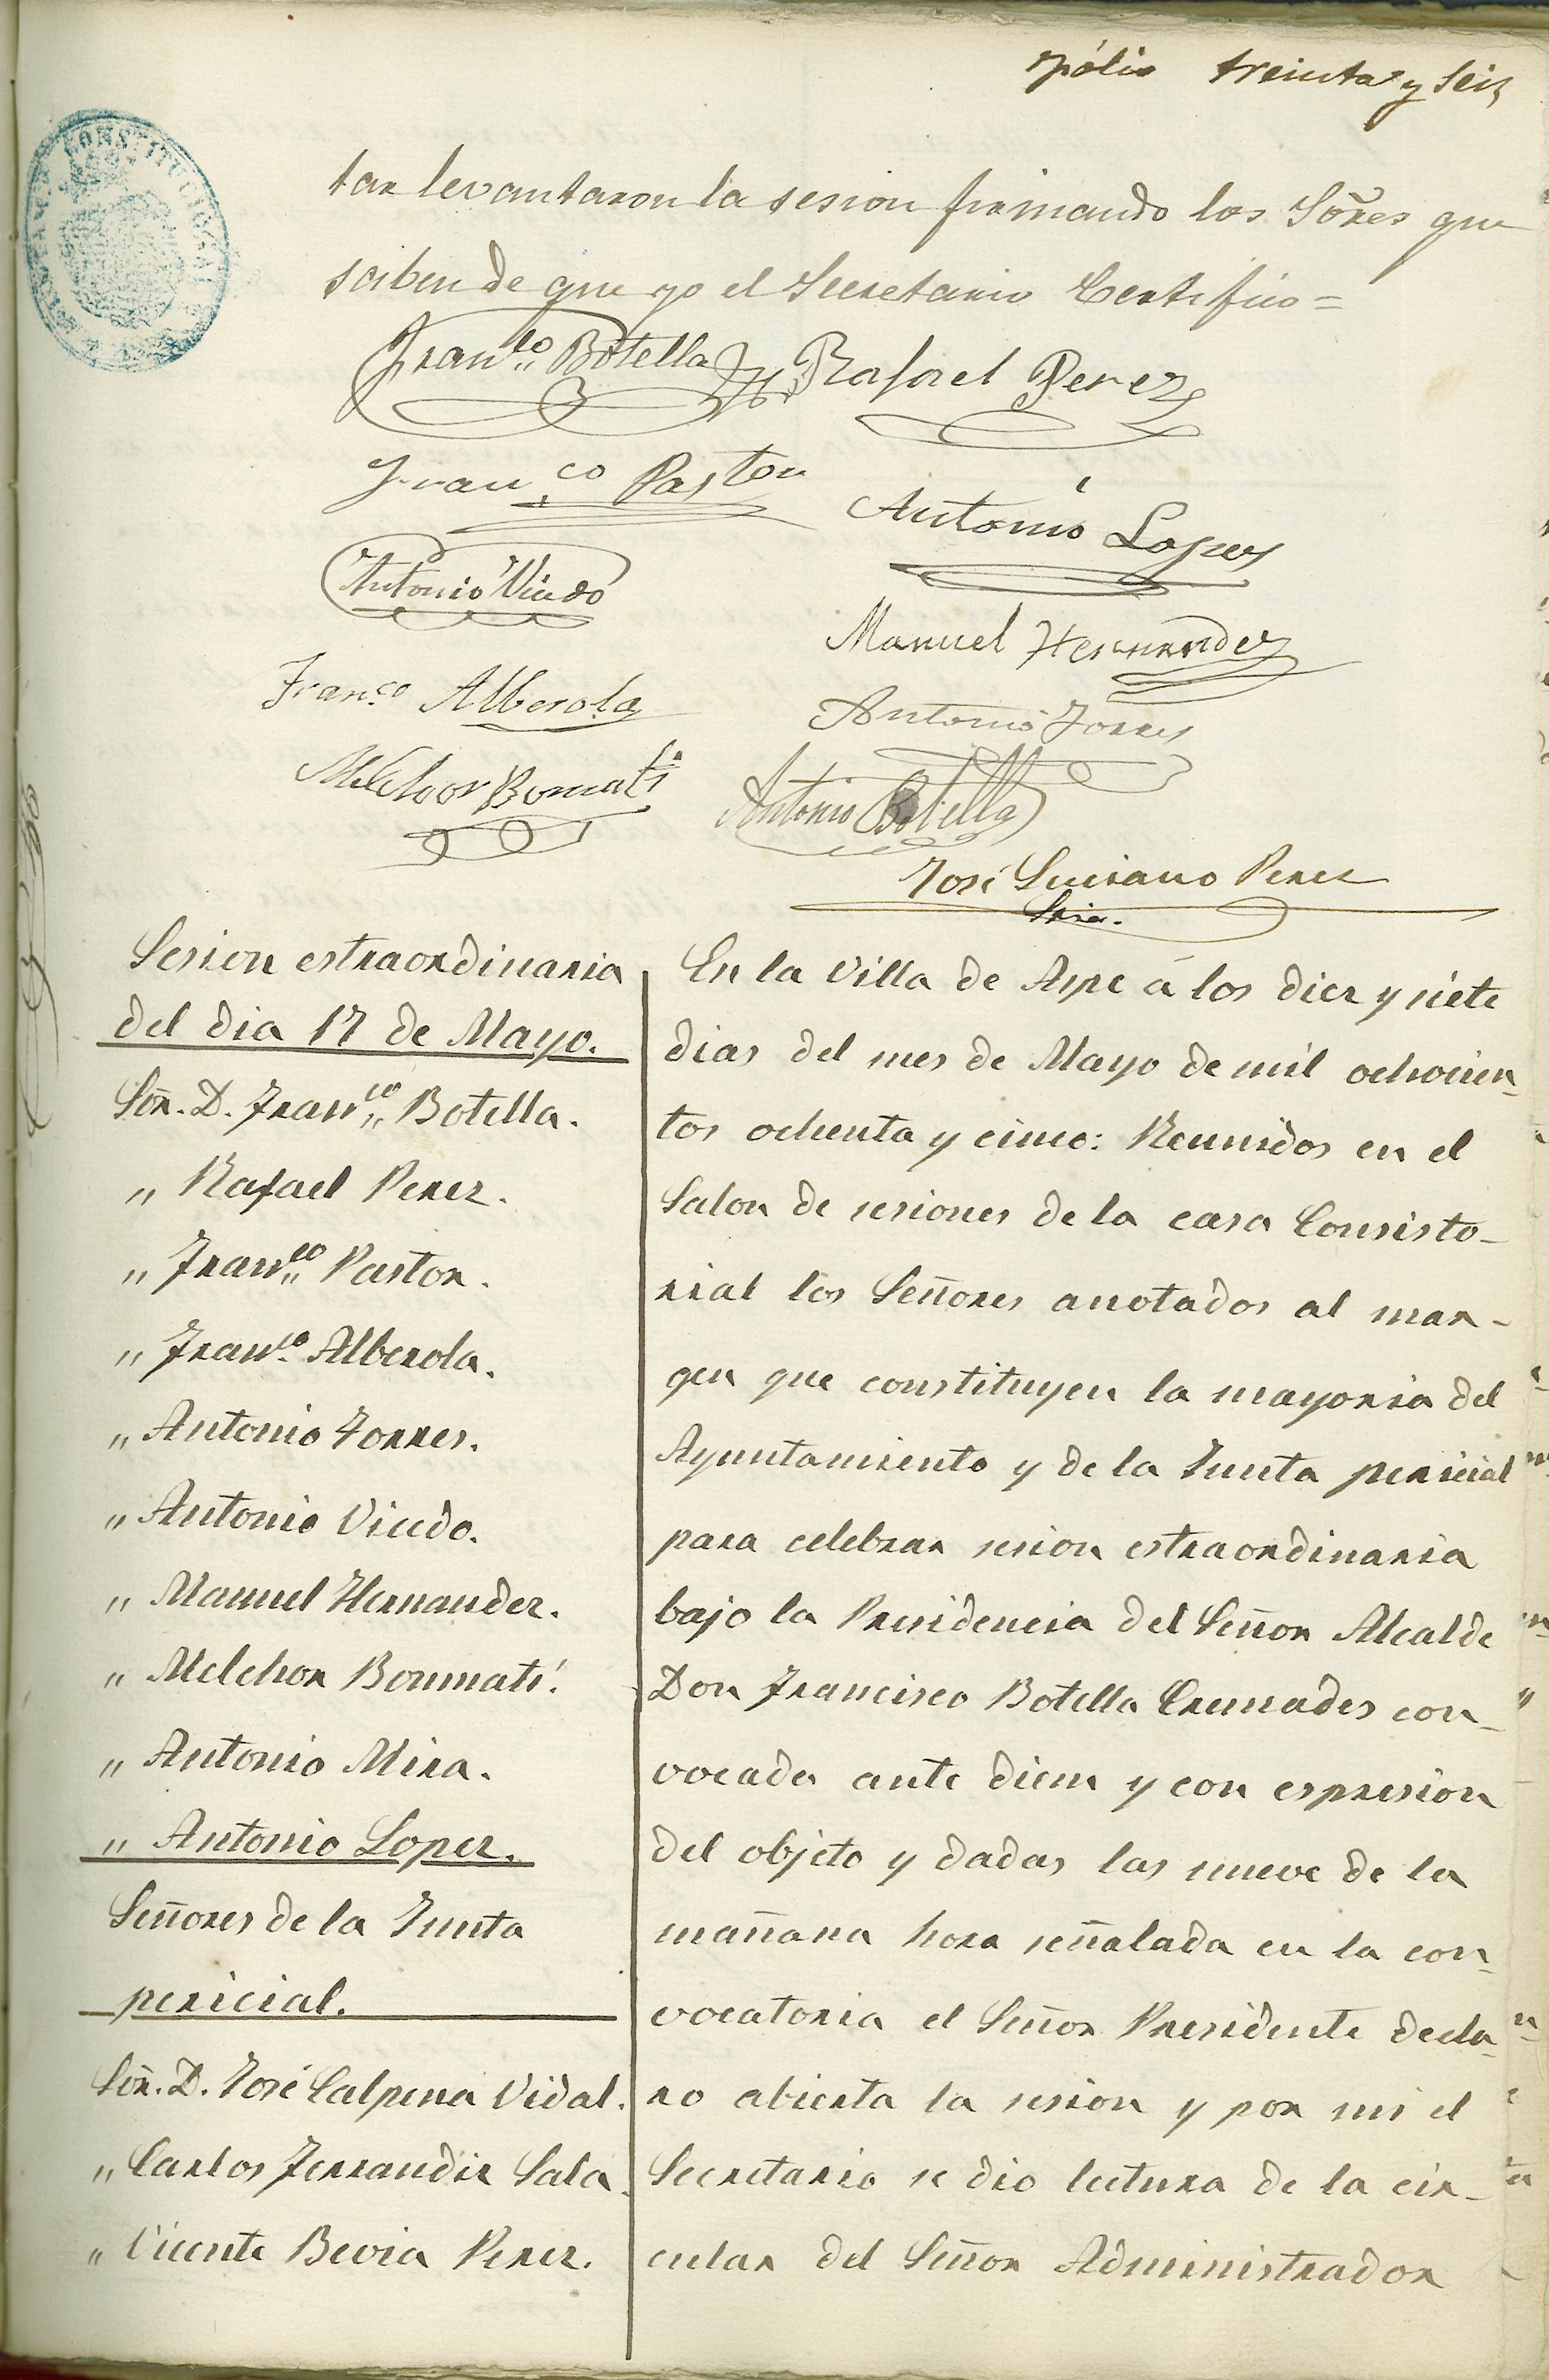 fólio treinta y seis
CONSTITUCIONAL
tar levantaron la sesion firmando los Sõres que
saben de que yo el Secretario Certifico=
Franco Botella Rafael Perez
Franco Pastor
Antonio Lopez
Antonio Viudo
Manuel Hernandez
Franco Alberola
Antonio Torres
Melchor Bomati
Antonio Botella
José Luciano Perez
Srio.
Sesion estraordinaria
del dia 17 de Mayo.
Sõr. D. Franco Botella.
" Rafael Perez.
" Franco Pastor.
" Franco Alberola.
" Antonio Torres.
" Antonio Viudo.
" Manuel Hernandez.
" Melchor Bonmatí.
" Antonio Mira.
" Antonio Lopez.
Señores de la Junta
pericial.
Sõr. D. José Calpena Vidal.
" Carlos Ferrandiz Sala.
" Vicente Bevia Perez.
En la Villa de Aspe á los diez y siete
dias del mes de Mayo de mil ochocien-
tos ochenta y cinco: Reunidos en el
Salon de sesiones de la casa Consisto-
rial los Señores anotados al mar-
gen que constituyen la mayoria del
Ayuntamiento y de la Junta pericial
para celebrar sesion estraordinaria
bajo la Presidencia del Señor Alcalde
Don Francisco Botella Cremades con-
vocada ante diem y con espresion
del objeto y dadas las nueve de la
mañana hora señalada en la con-
vocatoria el Señor Presidente decla-
ro abierta la sesion y por mi el
Secretario se dio lectura de la cir-
cular del Señor Administrador